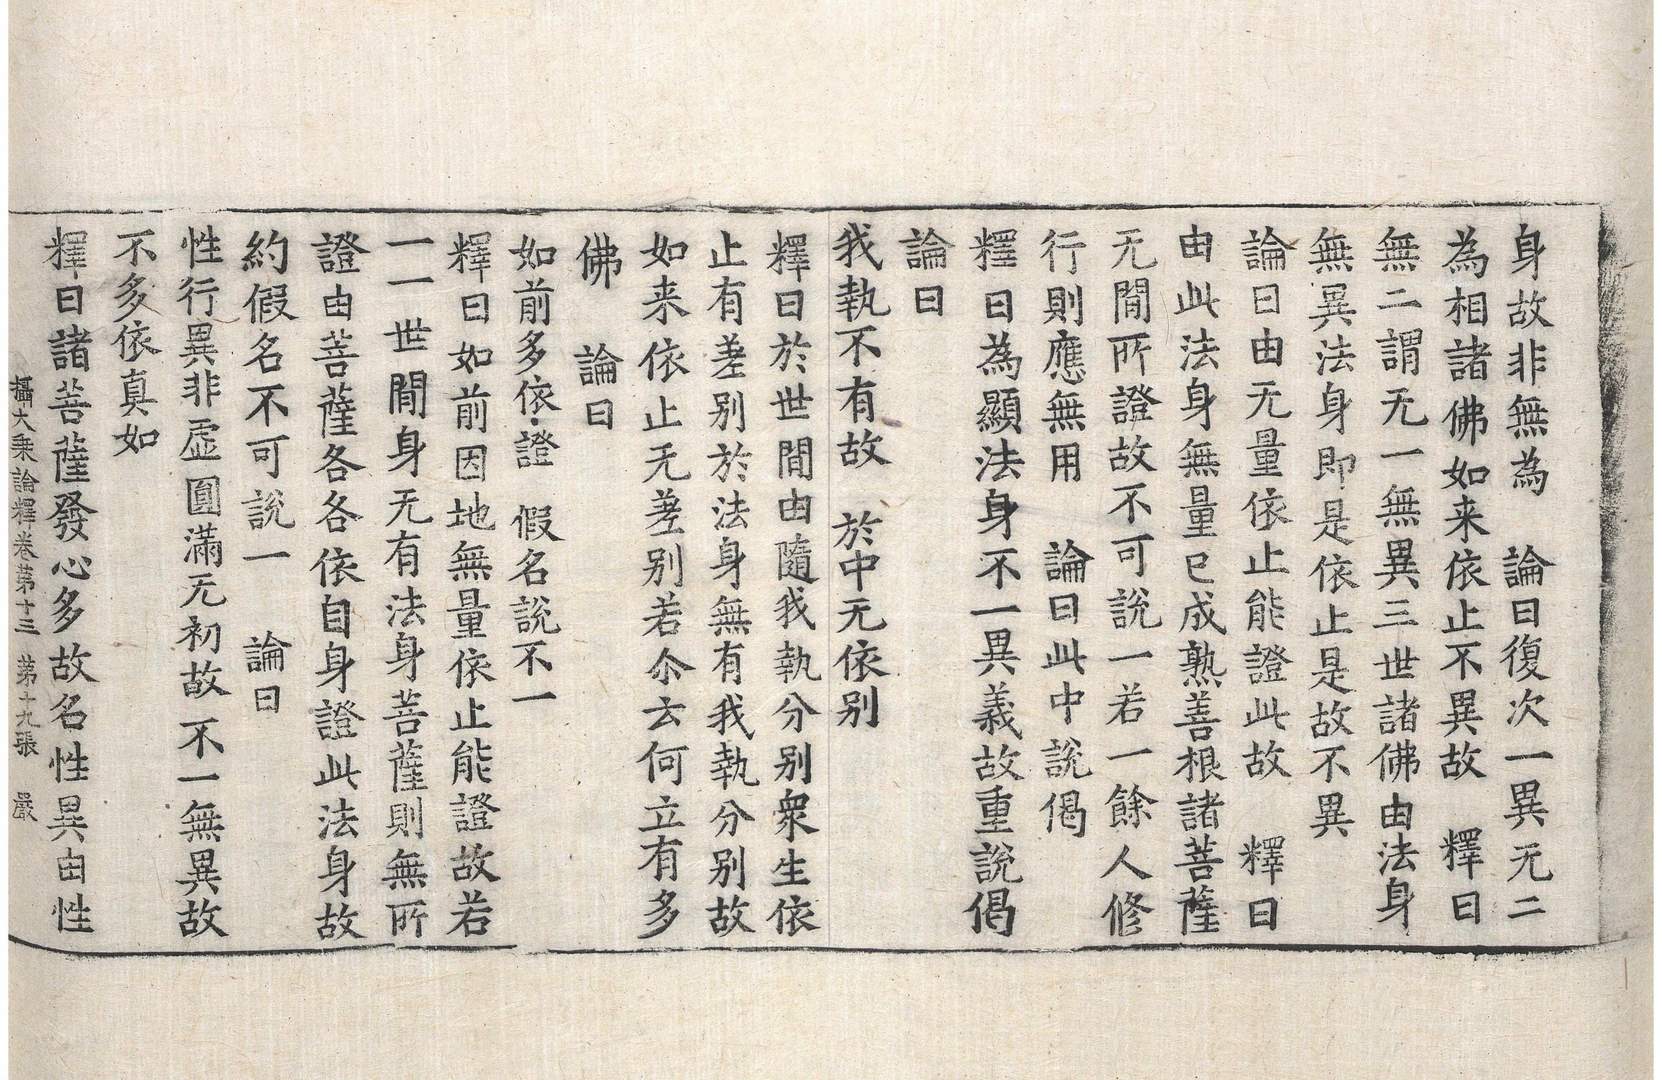 身故非無為　論曰復次一異无二
為相諸佛如来依止不異故　釋曰
無二謂无一無異三世諸佛由法身
無異法身即是依止是故不異
論曰由无量依止能證此故　釋曰
由此法身無量已成熟善根諸菩薩
无間所證故不可說一若一餘人修
行則應無用　論曰此中說偈
釋曰為顯法身不一異義故重說偈
論曰
我執不有故　於中无依别
釋曰於世間由隨我執分别衆生依
止有差别於法身無有我執分别故
如来依止无差别若尒云何立有多
佛　論曰
如前多依證　假名說不一
釋曰如前因地無量依止能證故若
一一世間身无有法身菩薩則無所
證由菩薩各各依自身證此法身故
約假名不可說一　論曰
性行異非虛　圓滿无初故　不一無異故
不多依真如
釋曰諸菩薩發心多故名性異由性
攝大乗論釋卷第十三　第十九張　嚴